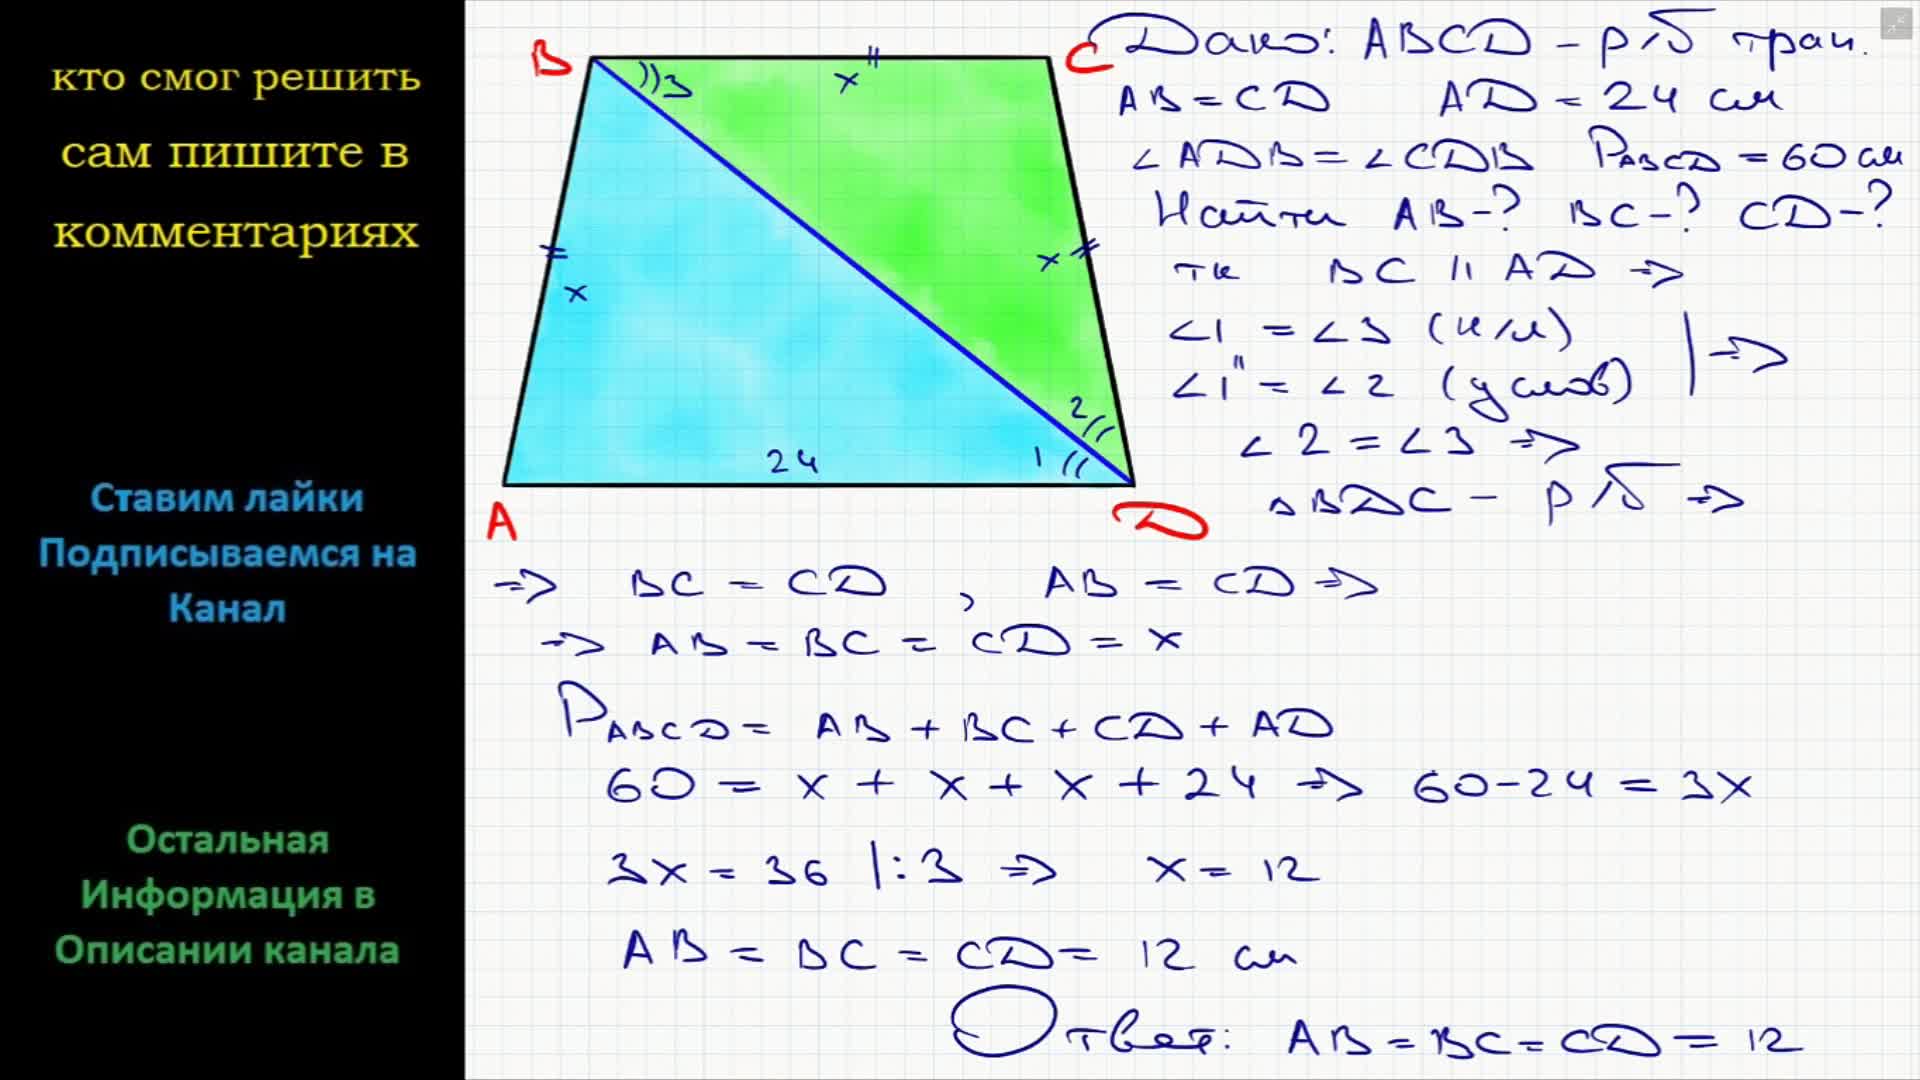 кто смог решить
сам пишите в
комментариях
Ставим лайки
Подписываемся на
Канал
Остальная
Информация в
Описании канала
B
C
A
D
))3
x
x
x
2
1
24
Дано: ABCD - р/б трап.
AB = CD AD = 24 см
∠ADB = ∠CDB PABCD = 60 см
Найти AB-? BC-? CD-?
тк BC || AD ⇒
∠1 = ∠3 (н/л) | ⇒
∠1 = ∠2 (услов)
∠2 = ∠3 ⇒
△BDC - р/б ⇒
⇒ BC = CD , AB = CD ⇒
⇒ AB = BC = CD = x
PABCD = AB + BC + CD + AD
60 = x + x + x + 24 ⇒ 60-24 = 3x
3x = 36 |:3 ⇒ x = 12
AB = BC = CD = 12 см
Ответ: AB = BC = CD = 12